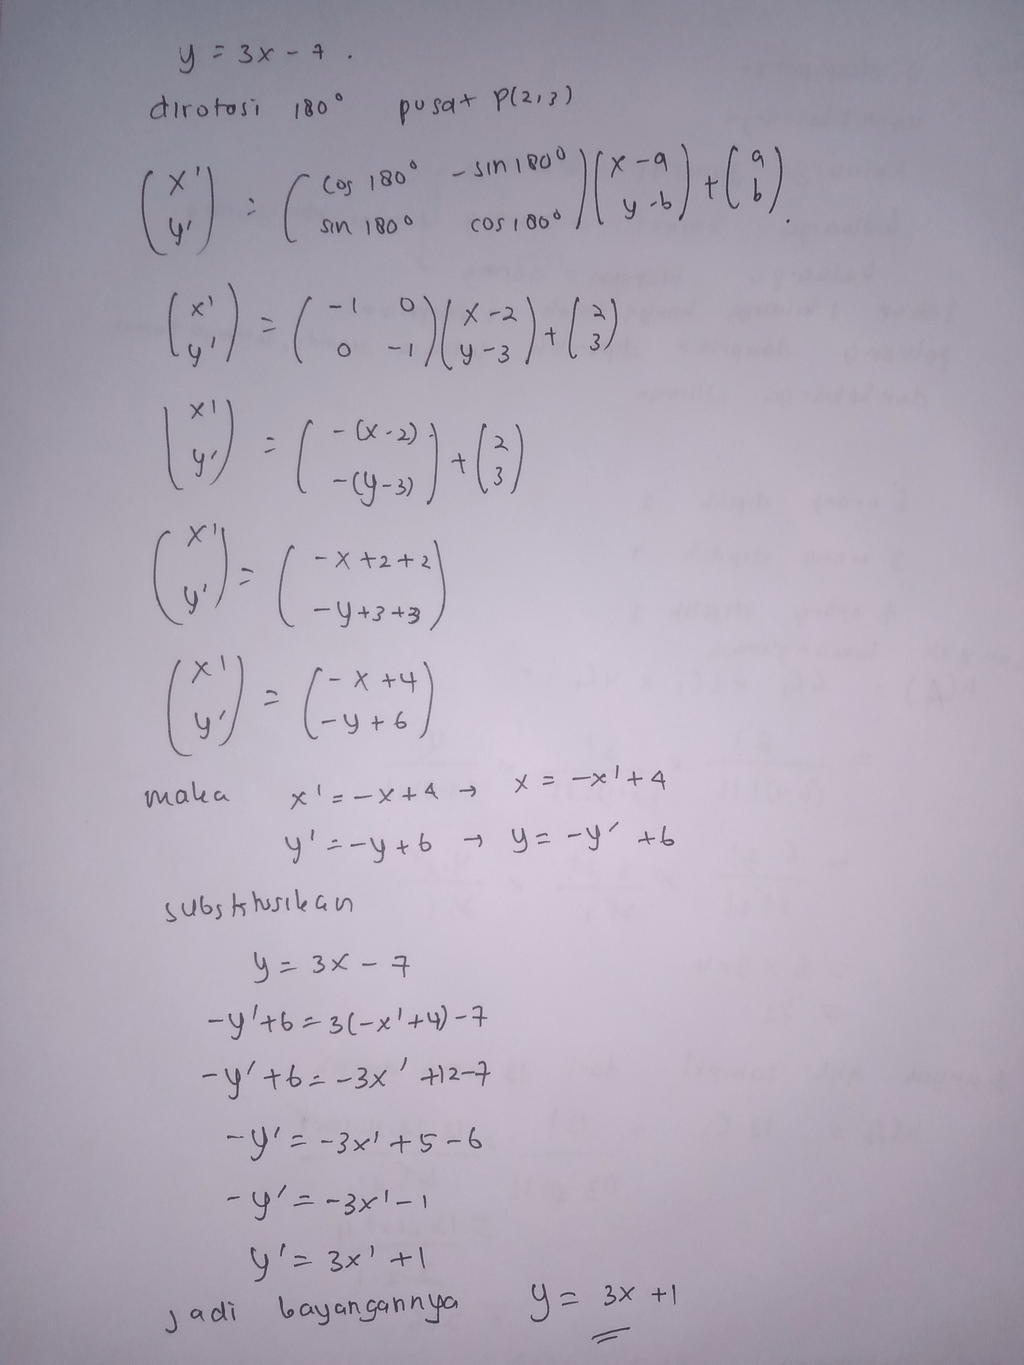 y = 3x - 7.
dirotasi 180° pusat P(2,3)
(x' y') = (cos 180° -sin 180° sin 180° cos 180°)(x-a y-b) + (a b).
(x' y') = (-1 0 0 -1)(x-2 y-3) + (2 3)
(x' y') = (-(x-2) -(y-3)) + (2 3)
(x' y') = (-x+2+2 -y+3+3)
(x' y') = (-x+4 -y+6)
maka x' = -x+4 → x = -x'+4
y' = -y+6 → y = -y'+6
substitusikan
y = 3x - 7
-y'+6 = 3(-x'+4)-7
-y'+6 = -3x'+12-7
-y' = -3x'+5-6
-y' = -3x'-1
y' = 3x'+1
jadi bayangannya y = 3x+1